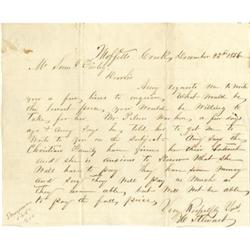 Moffetts Creek, December 22nd 1856
Mr. Jno. D.
Dear Sir
Amy requests me to write
you a few lines to enquire, What would be
the lowest price, you would be Willing to
take, for her. Mr. Tilson was here, a few days
ago & Amy Says he told her to get me to
Write to you on the Subject. Amy Says the
Christian Family have given her their
and she is anxious to Know What She
Will have to pay. they have some money
and they Say they will pay as much as
they are able, but Will not be able
to pay the full price.
Very Respectfully
Stewart